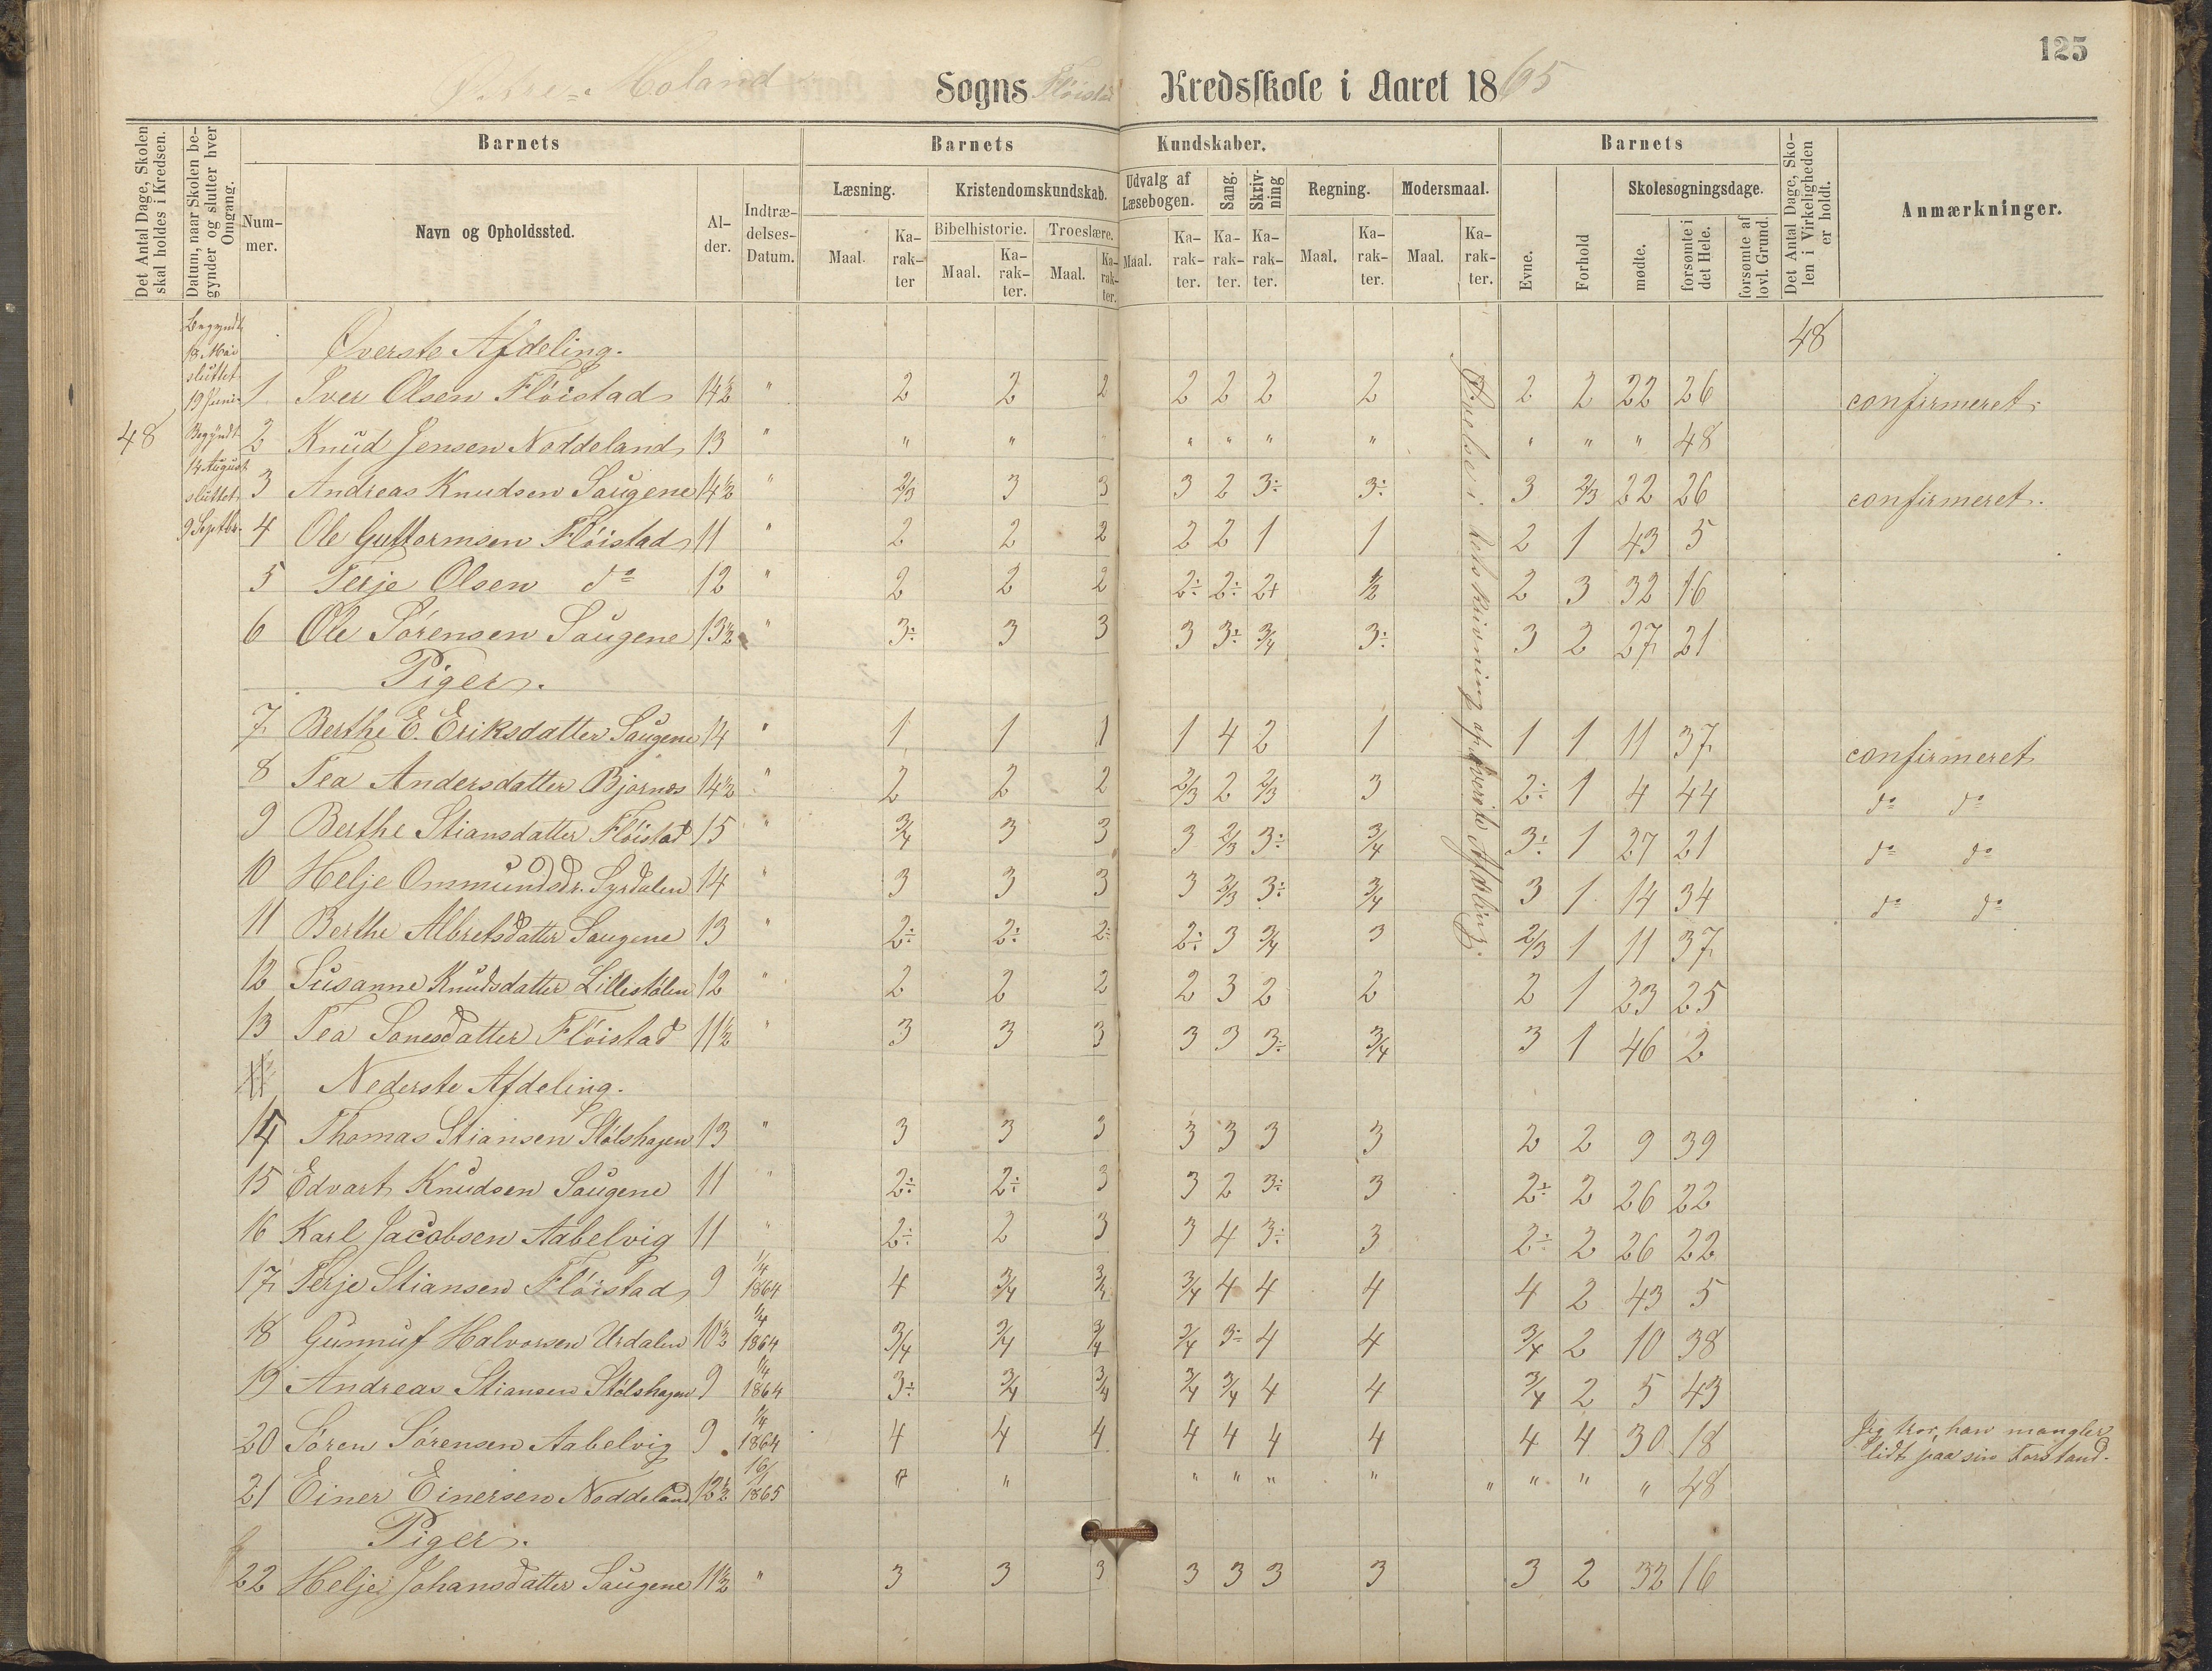 125
Østre= Moland Sogns Fløistad Kredsskole i Aaret 1865
Det Antal Dage, Skolen skal holdes i Kredsen.
Datum, naar Skolen begynder og slutter hver Omgang.
Barnets
Barnets Kundskaber.
Barnets
Det Antal Dage, Skolen i Virkeligheden er holdt.
Anmærkninger.
Nummer.
Navn og Opholdssted.
Alder.
Indtrædelses-Datum.
Læsning.
Kristendomskundskab.
Udvalg af Læsebogen.
Sang.
Skrivning
Regning.
Modersmaal.
Evne.
Forhold
Skolesøgningsdage.
Bibelhistorie.
Troeslære.
Maal. Karakter Maal. Karakter. Maal. Karakter. Maal. Karakter. Karakter. Karakter. Maal. Karakter. Maal. Karakter.
mødte.
forsømte i det Hele.
forsømte af lovl. Grund.
Begyndt 18 Mai sluttet 19 Juni
Begyndt 14 August sluttet 9 Septbr.
48
Øverste Afdeling. 48
1 Iver Olsen Fløistad 14½ " 2 2 2 2 2 2 2 2 2 22 26 confirmeret.
2 Knud Jensen Noddeland 13 " " " " " " " " " " 48
3 Andreas Knudsen Saugene 14½ " 2/3 3 3 3 2 3÷ 3÷ 3 2/3 22 26 confirmeret.
4 Ole Guttormsen Fløistad 11 " 2 2 2 2 2 1 1 2 1 43 5
5 Terje Olsen do 12 " 2 2 2 2÷ 2÷ 2+ 1/2 2 3 32 16
6 Ole Sørensen Saugene 13½ " 3÷ 3 3 3 3÷ 3/4 3÷ 3 2 27 21
Piger.
7 Berthe E. Eriksdatter Saugene 14 " 1 1 1 1 4 2 1 1 1 11 37 confirmeret
8 Tea Andersdatter Bjørnes 14½ " 2 2 2 2/3 2 2/3 3 2÷ 1 4 44 do do
9 Berthe Stiansdatter Fløistad 15 " 3/4 3 3 3 2/3 3÷ 3/4 3÷ 1 27 21 do do
10 Helje Ommundsdr. Syrdalen 14 " 3 3 3 3 2/3 3÷ 3/4 3 1 14 34 do do
11 Berthe Albretsdatter Saugene 13 " 2÷ 2÷ 2÷ 2÷ 3 3/4 3 2/3 1 11 37
12 Susanne Knudsdatter Lillestølen 12 " 2 2 2 2 3 2 2 2 1 23 25
13 Tea Sonesdatter Fløistad 11½ " 3 3 3 3 3 3÷ 3/4 3 1 46 2
Øvelse i Retskrivning af øverste Afdeling.
Nederste Afdeling.
14 Thomas Stiansen Stølshagen 13 " 3 3 3 3 3 3 3 2 2 9 39
15 Edvart Knudsen Saugene 11 " 2÷ 2÷ 3 3 2 3÷ 3 2÷ 2 26 22
16 Karl Jacobsen Aabelvig 11 " 2÷ 2 3 3 4 3÷ 3 2÷ 2 26 22
17 Terje Stiansen Fløistad 9 1/4 1864 4 3/4 3/4 3/4 4 4 4 4 2 43 5
18 Gunnuf Halvorsen Urdalen 10½ 1/4 1864 3/4 3/4 3/4 3/4 3÷ 4 4 3/4 2 10 38
19 Andreas Stiansen Stølshagen 9 1/4 1864 3÷ 3/4 3/4 3/4 3/4 4 4 3/4 2 5 43
20 Søren Sørensen Aabelvig 9 1/4 1864 4 4 4 4 4 4 4 4 4 30 18 Jeg tror, han mangler lidt paa sin Forstand.
21 Einer Einersen Noddeland 12½ 16/1 1865 " " " " " " " " " " 48
Piger.
22 Helje Johansdatter Saugene 11½ " 3 3 3 3 3 3 3 3 2 32 16